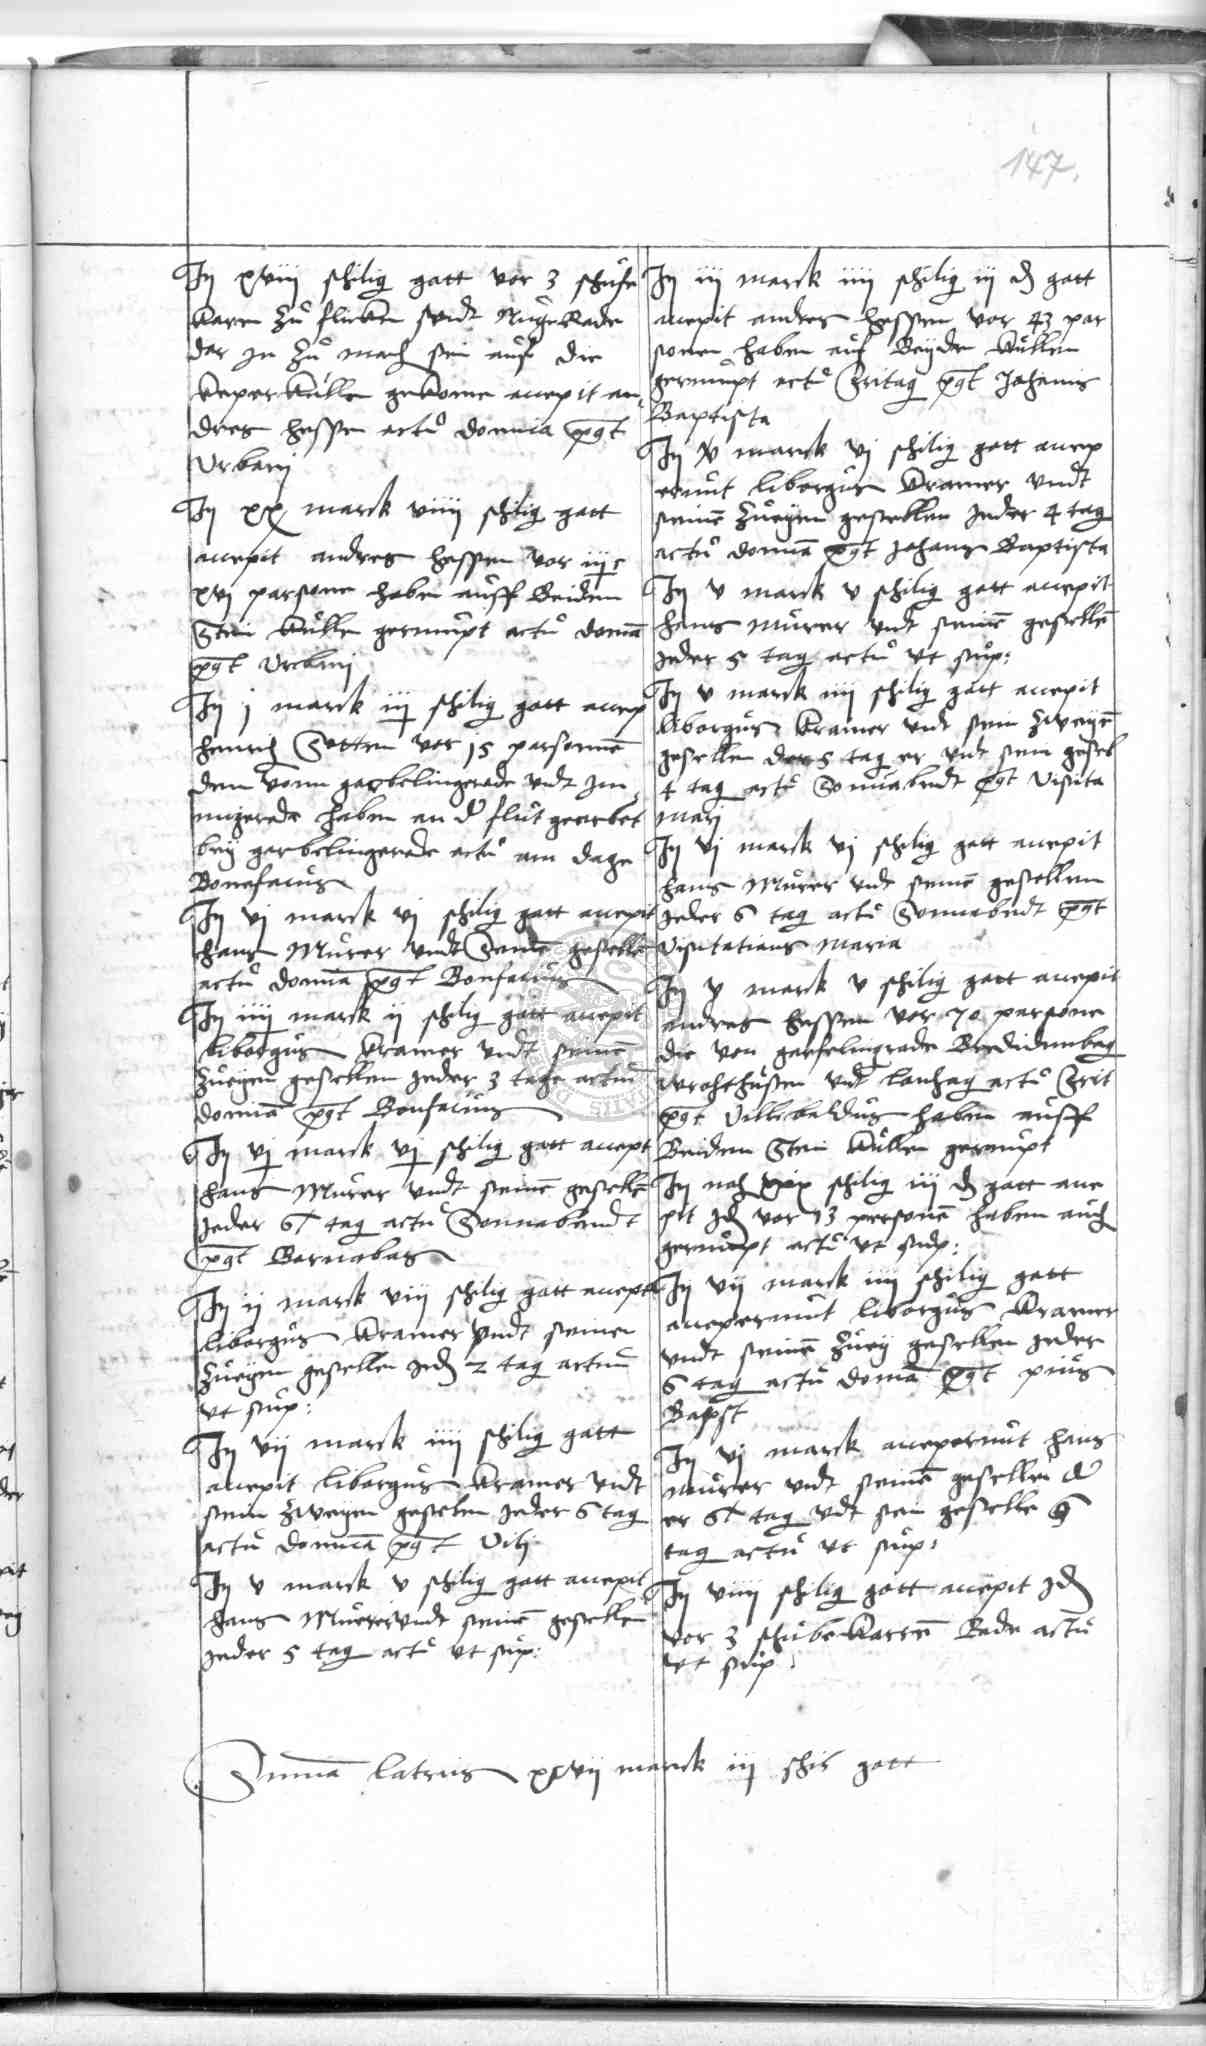 147.
Itz xviii schilig gatt vor 3 schufe
karen zu flicken vndt Nuge Rade
dar in zu mach sin auf die
koper kulle gekome accepit an
dres hessen actu domica pqt
Vrbani
Itz xx marck viiii schilig gatt
accepit andres hessen vor iii c
xvi parsone haben auff beiden
Stein kullen gerumpt actu domca
pqt Vrbani
Itz j marck iij schilig gatt accep
henrich vor 15 parsonne
dem vonn garbelingerade vndt Im
migerade haben an d flut gearbet
bey garbelingerade actu am dage
Bonefacius
Itz vi marck vi schilig gatt accepit
hans Murer vndt Seine geselle
actu domica pqt Bonfacius
Itz iiii marck ij schilig gatt accepit
liborgus kramer vndt seine
zueyen gesellen Jeder 3 tage actum
domica pqt Bonfacius
Itz vi marck vi schilig gatt accept
hans Murer vndt seine geselle
Jeder 6 tag actu Sonnabendt
pqt Barnabas
Itz ij marck viii schilig gatt accepit
liborgus kramer vndt seinen
zueyen gesellen Jed 2 tag actum
vt sup:
Itz vij marck iiii schilig gatt
accepit liborgus kramer vndt
sein zweyen gesellen Jeder 6 tag
actu domica pqt Viti
Itz v marck v schilig gatt accepit
hans Murer vndt seine geselle
Jeder 5 tag actu vt sup:
Itz iii marck iiii schilig iij d gatt
accepit andres hessen vor 43 par
sonen haben auf Beyde kullen
gerumpt actu fritag pqt Johanis
Baptista
Itz v marck vj schilig gatt accep
erunt liborgus kramer vndt
seine zueyen gesellen Jeder 4 tag
actu domica pqt Johans Baptista
Itz v marck v schilig gatt accepit
hans murer vndt seine geselle
Jeder 5 tag actu vt sup:
Itz v marck iiii schilig gatt accepit
liborgus kramer vndt sein zweye
gesellen der 5 tag er vndt sein gesel
4 tag actu Sonnabendt pqt Visita
Mari
Itz vj marck vj schilig gatt accepit
hans Murer vndt seine gesellen
Jeder 6 tag actu Sonnabndt pqt
Visitatians Maria
Itz v marck v schilig gatt accepit
andres hessen vor 70 parsone
die von garbelingrade
vndt actu frit
pqt Villibaldus haben auff
Beiden Stein kullen gerumpt
Itz noch xix schilig iii d gatt acce
pit Jd vor 13 personen haben auch
gerumpt actu vt sup:
Itz vij marck iiii schilig gatt
acceperunt liborgus kramer
vndt seine zuey gesellen Jeder
6 tag actu domica pqt pius
Bapst
Itz vj marck acceperunt hans
murer vndt seine gesellen d
er 6 tag vdt sein geselle
tag actu vt sup:
Itz viiii schilig gatt accepit Jd
vor 3 schube karren Rade actu
vt sup:
Suma latris xxvij marck iij schil gatt